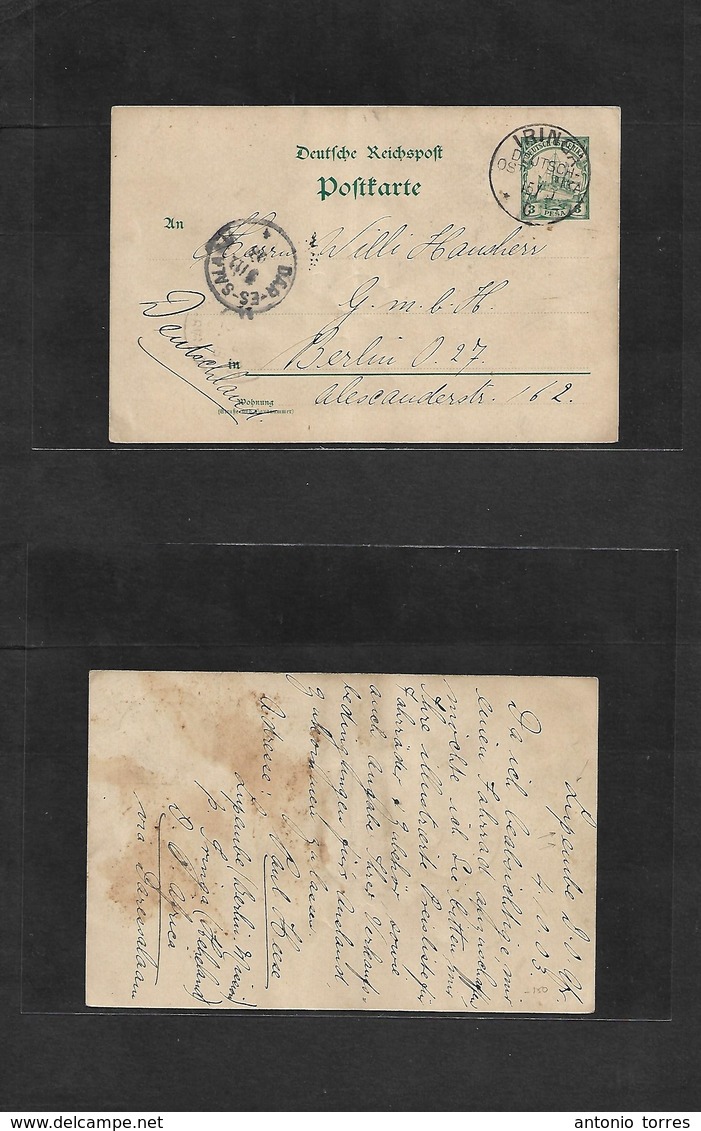 Deutsche Reichspost
Postkarte
IRINGA
DEUTSCH-
OSTAFRIKA
3 PESA 3
DAR-ES-SALAAM
An
Herrn Willi Hausherr
G.m.b.H.
in Berlin O. 27.
Alexanderstr. 162.
Deutschland.
Wohnung
Lupembe D.O.A.
03.
Da ich beabsichtige, mir
einen Fahrrad anzuschaffen
möchte ich Sie bitten, mir
Ihre illustrirte Preisliste für
Fahrräder & Zubehör sowie
auch Angabe Ihrer Verkaufs-
bedingungen fürs Ausland,
zukommen zu lassen.
Adresse: Paul Heese
Lupembe, Berlin.
p. Iringa (Heheland)
D. O. Africa
via Daressalaam
150
antonio torres